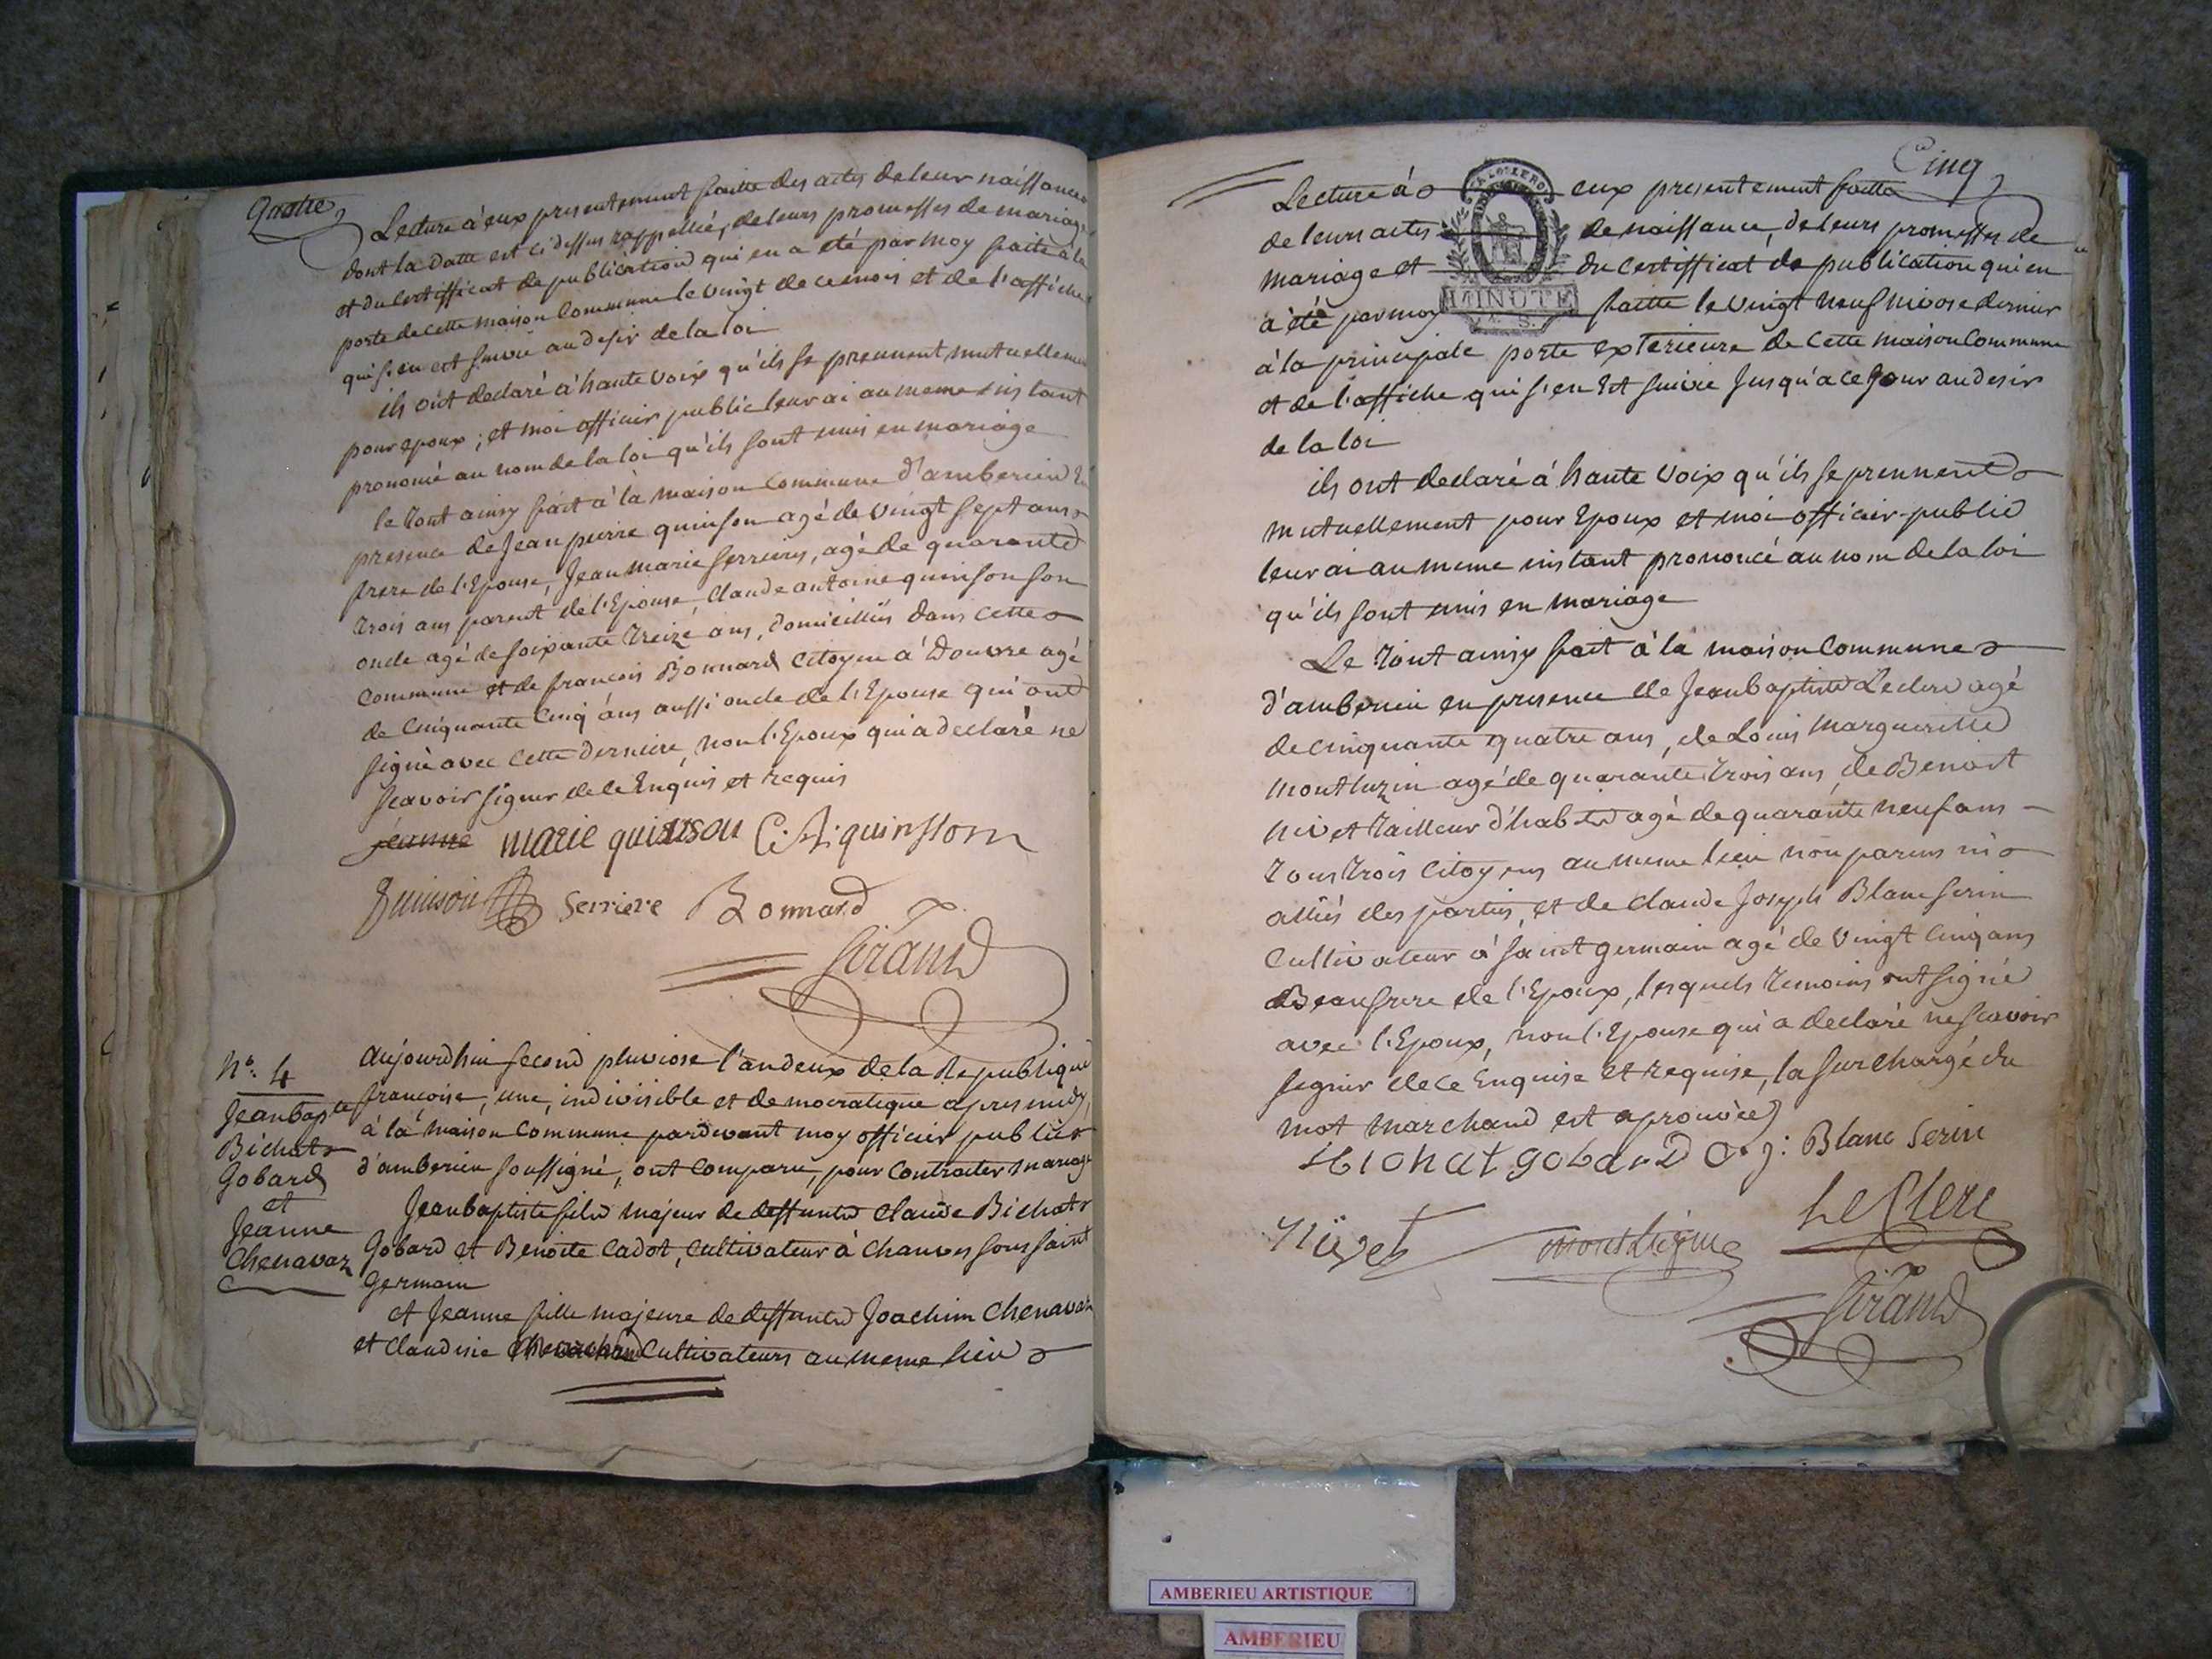 Quatre
Lecture à eux presentement faitte des actes de leur naissance
dont la datte est ci dessus rappellée, de leurs promesses de mariage
et du Certifficat de publication qui en a été par moy faite à la
porte de cette maison Commune le vingt de ce mois et de l'affiche
qui s'en est suivie au desir de la loi
ils ont declaré à haute voix qu'ils se prennent mutuellement
pour epoux ; et moi officier public leur ai au meme instant
prononcé au nom de la loi qu'ils sont unis en mariage
le tout ainsy fait à la maison Commune d'amberieu En
presence de Jean pierre quinson agé de vingt sept ans
frere de l'Epouse, Jean marie serrieres, agé de quarante
trois ans parent de l'Epouse, Claude antoine quinson son
oncle agé de soixante treize ans, domiciliés dans cette
Commune et de francois Bonnard Citoyen à Douvre agé
de Cinquante Cinq ans aussi oncle de l'Epouse qui ont
signé avec cette derniere, non l'Epoux qui a declaré ne
scavoir signer de ce Enquis et requis
jeanne marie quinson C. A. quinsson
Quinson serriere Bonnard
Girand
N°. 4
Jean bapte
Bichat
Gobard
et
Jeanne
Chenavaz
aujourdhui second pluviose l'an deux de la Republique
francoise, une, indivisible et democratique apres midy,
à la maison Commune pardevant moy officier public
d'amberieu soussigné, ont Comparu, pour Contracter mariage
Jean baptiste fils majeur de deffunts Claude Bichat
Gobard et Benoite Cadot, Cultivateur à Chauves sous saint
Germain
et Jeanne fille majeure de deffunts Joachim Chenavaz
et Claudine Marchand Cultivateurs au meme lieu
Cinq
Lecture à eux presentement faitte
de leurs actes de naissance, de leurs promesses de
mariage et du Certifficat de publication qui en
a été par moy faitte le vingt neuf nivose dernier
MINUTE
à la principale porte exterieure de cette maison Commune
et de l'affiche qui s'en est suivie jusqu'a ce jour au desir
de la loi
ils ont declaré à haute voix qu'ils se prennent
mutuellement pour Epoux et moi officier public
leur ai au meme instant prononcé au nom de la loi
qu'ils sont unis en mariage
Le tout ainsy fait à la maison Commune
d'amberieu en presence de Jean baptiste Leclerc agé
de cinquante quatre ans, de Louis Margueritte
Montluzin agé de quarante trois ans, de Benoit
nivet tailleur d'habits agé de quarante neuf ans
tous trois Citoyens au meme lieu non parens ni
alliés des parties, et de Claude Joseph Blanc serin
Cultivateur à Saint germain agé de vingt Cinq ans
Beaufrere de l'Epoux, lesquels temoins ont signé
avec l'Epoux, non l'Epouse qui a declaré ne scavoir
signer de ce Enquise et requise, la surchargé du
mot marchand est aprouvée
Bichat gobard C. j: Blanc Serin
Nivet LeClerc
Girand
AMBERIEU ARTISTIQUE
AMBERIEU